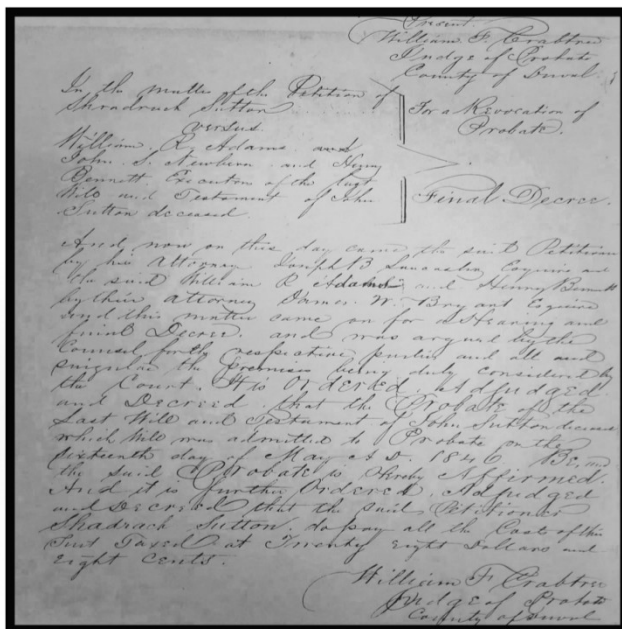 Present.
William F. Crabtree
Judge of Probate
County of Duval.
In the matter of the Petition of
Shradrach Sutton
versus
William R. Adams and
John S. Newburn and Henry
Bennett. Executors of the last
Will and Testament of John
Sutton deceased
For a Revocation of
Probate.
Final Decree.
And now on this day came the said Petitioner
by his Attorney Joseph B Lancaster Esquire and
the said William R Adams and Henry Bennett
by their Attorney James W. Bryant Esquire
and this matter came on for a Hearing and
final Decree. and was argued by the
Counsel for the respective parties and all and
singular the premises being duly considered by
the Court. It is Ordered. Adjudged.
and Decreed. that the Probate of the
Last Will and Testament of John Sutton deceased
which Will was admitted to Probate on the
Sixteenth day of May A.D. 1846. Be, and
the said Probate is hereby Affirmed.
And it is further Ordered. Adjudged
and Decreed that the said Petitioner
Shadrach Sutton. do pay all the Costs of this
Suit Taxed at Twenty eight Dollars and
eight cents.
William F Crabtree
Judge of Probate
County of Duval